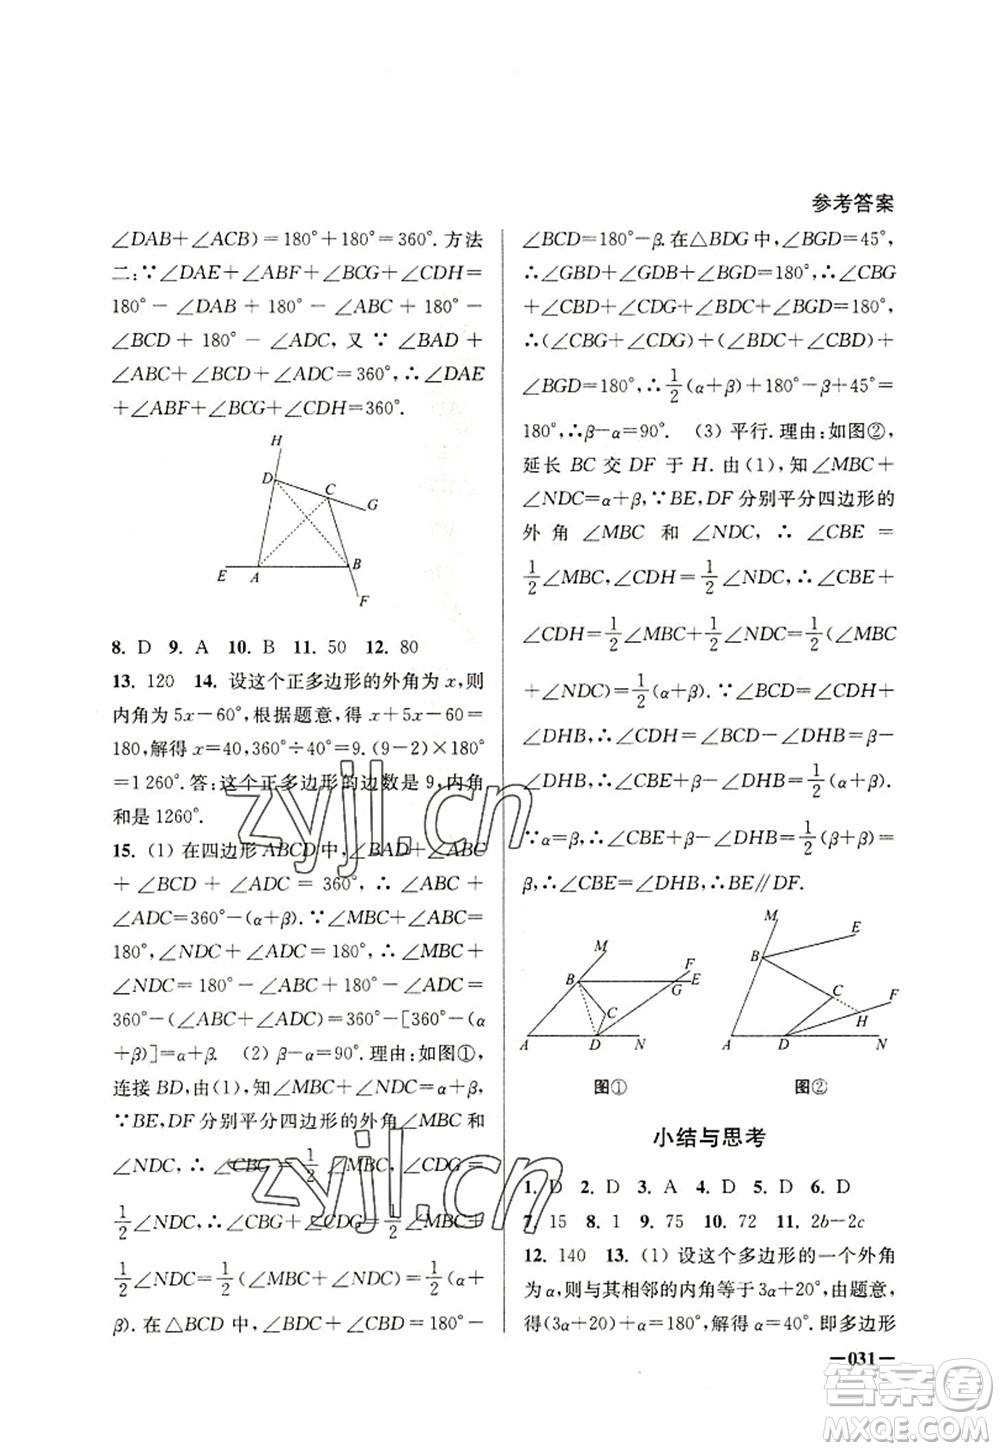 参考答案
∠DAB+∠ACB)=180°+180°=360°. 方法
二:∵∠DAE+∠ABF+∠BCG+∠CDH=
180°-∠DAB+180°-∠ABC+180°-
∠BCD+180°-∠ADC,又∵∠BAD+
∠ABC+∠BCD+∠ADC=360°,∴∠DAE
+∠ABF+∠BCG+∠CDH=360°.
H
D
C
G
E
A
B
F
8. D 9. A 10. B 11. 50 12. 80
13. 120 14. 设这个正多边形的外角为x,则
内角为5x-60°,根据题意,得x+5x-60=
180,解得x=40,360°÷40°=9.(9-2)×180°
=1 260°.答:这个正多边形的边数是9,内角
和是1260°.
15. (1) 在四边形ABCD中,∠BAD+∠ABC
+∠BCD+∠ADC=360°,∴∠ABC+
∠ADC=360°-(α+β).∵∠MBC+∠ABC=
180°,∠NDC+∠ADC=180°,∴∠MBC+
∠NDC=180°-∠ABC+180°-∠ADC=
360°-(∠ABC+∠ADC)=360°-[360°-(α
+β)]=α+β. (2) β-α=90°.理由:如图①,
连接BD,由(1),知∠MBC+∠NDC=α+β,
∵BE,DF分别平分四边形的外角∠MBC和
∠NDC,∴∠CBG=1/2∠MBC,∠CDG=
1/2∠NDC,∴∠CBG+∠CDG=1/2∠MBC+
1/2∠NDC=1/2(∠MBC+∠NDC)=1/2(α+
β).在△BCD中,∠BDC+∠CBD=180°-
∠BCD=180°-β.在△BDG中,∠BGD=45°,
∴∠GBD+∠GDB+∠BGD=180°,∴∠CBG
+∠CBD+∠CDG+∠BDC+∠BGD=180°,
∴(∠CBG+∠CDG)+(∠BDC+∠CBD)+
∠BGD=180°,∴1/2(α+β)+180°-β+45°=
180°,∴β-α=90°. (3) 平行.理由:如图②,
延长BC交DF于H.由(1),知∠MBC+
∠NDC=α+β,∵BE,DF分别平分四边形的
外角∠MBC和∠NDC,∴∠CBE=
1/2∠MBC,∠CDH=1/2∠NDC,∴∠CBE+
∠CDH=1/2∠MBC+1/2∠NDC=1/2(∠MBC
+∠NDC)=1/2(α+β).∵∠BCD=∠CDH+
∠DHB,∴∠CDH=∠BCD-∠DHB=β-
∠DHB,∴∠CBE+β-∠DHB=1/2(α+β).
∵α=β,∴∠CBE+β-∠DHB=1/2(β+β)=
β,∴∠CBE=∠DHB,∴BE∥DF.
M
F
B
E
G
C
A
D
N
图①
M
E
B
C
F
H
A
D
N
图②
小结与思考
1. D 2. D 3. A 4. D 5. D 6. D
7. 15 8. 1 9. 75 10. 72 11. 2b-2c
12. 140 13. (1) 设这个多边形的一个外角
为α,则与其相邻的内角等于3α+20°,由题意,
得(3α+20)+α=180°,解得α=40°.即多边形
—031—
zyjl.cn
zyjl.cn
答案圈
MXQE.COM